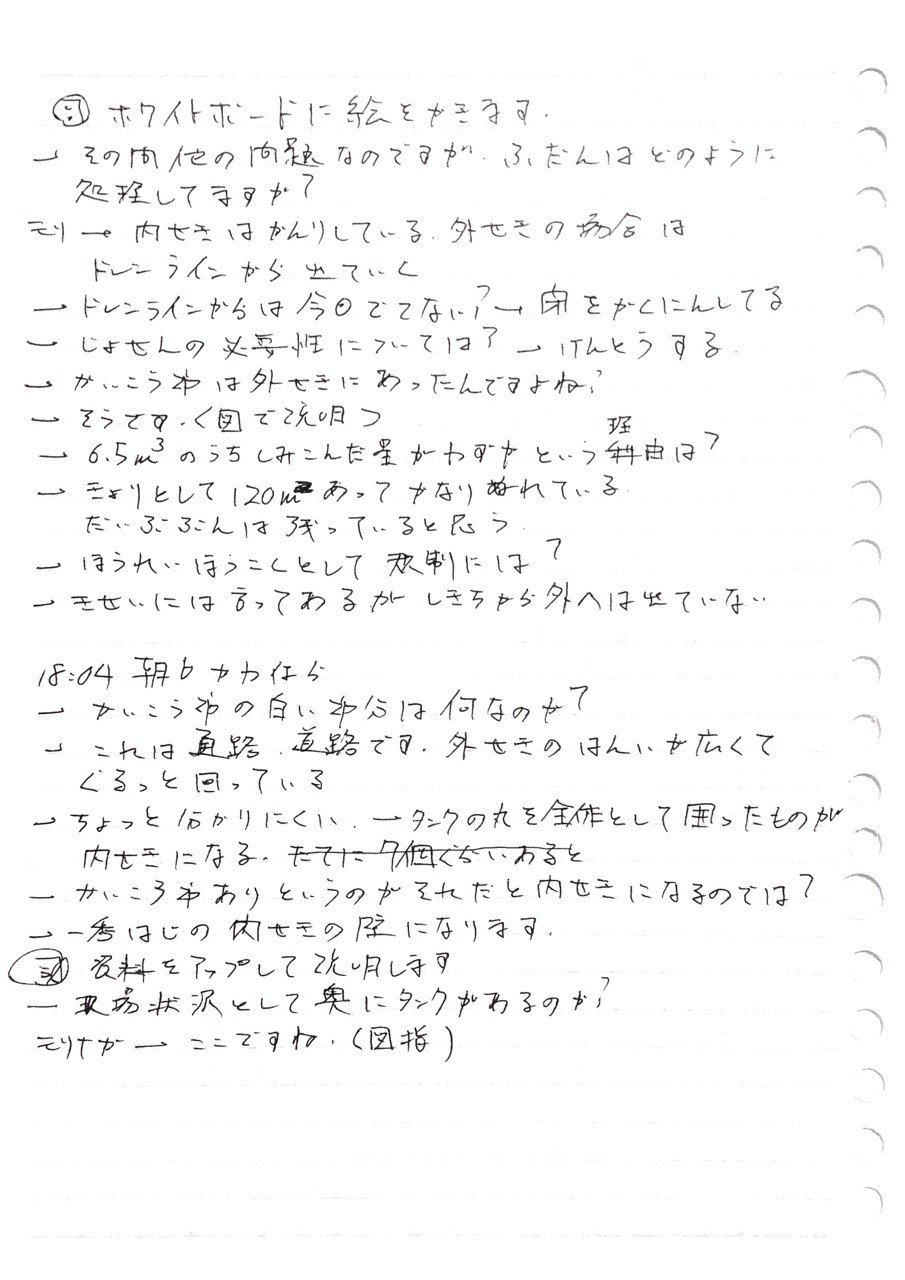 ホワイトボードに絵をかきます.
→ その内他の問題なのですが、ふだんはどのように
処理してますか?
モリ → 内せきはかんりしている. 外せきの場合は
ドレンラインから出ていく
→ ドレンラインからは今回でてない? → 閉をかくにんしてる
→ じょせんの必要性については? → けんとうする.
→ かいこう部は外せきにあったんですよね?
→ そうです. <図で説明>
→ 6.5m³のうちしみこんだ量がわずかという理由は?
→ きょりとして120mあってかなりぬれている.
だいぶぶんは残っていると思う.
→ ほうれいほうこくとして規制には?
→ きせいには言ってあるがしきちから外へは出ていない
18:04 朝日 カワはら
→ かいこう部の白い部分は何なのか?
→ これは通路、道路です. 外せきのはんいが広くて
ぐるっと回っている
→ ちょっと分かりにくい. → タンクの丸を全体として囲ったものが
内せきになる. たてに7個ぐらいあると
→ かいこう部ありというのがそれだと内せきになるのでは?
→ 一番はじの内せきの陰になります.
資料をアップして説明します
→ 現場状況として奥にタンクがあるのか?
モリナガ → ここですね. (図指)